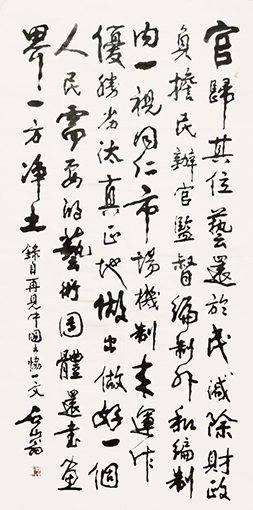 官歸其位藝還於民減除財政
負擔民辦官監督編制外和編制
內一視同仁市場機制去運作
優勝劣汰真正地做出做好一個
人民需要的藝術團體還書畫
界一方淨土
錄自再見中國書協一文 石山翁